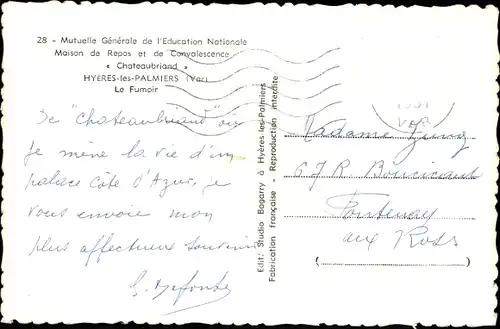 28 - Mutuelle Générale de l'Education Nationale
Maison de Repos et de Convalescence
« Chateaubriand »
HYÈRES-les-PALMIERS (Var)
Le Fumoir
De "Chateaubriand" où
je mène la vie d'un
palace Côte d'Azur, je
vous envoie mon
plus affectueux souvenir
Edit. Studio Bagarry à Hyères-les-Palmiers
Fabrication française - Reproduction interdite
VAR
Madame
67 R. Boucicaut
Fontenay
aux Roses
( )